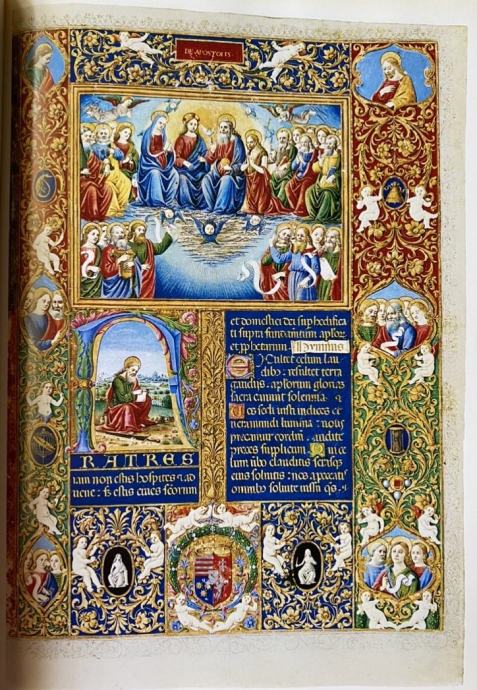 DE APOSTOLIS.
FRATRES
iam non estis hospites & ad
uene: sʒ estis ciues sctorum
et domestici dei suphedifica
ti supra fundamtum aplor
et pphetarum. Hymnus.
Exultet celum lau
dibus: resultet terra
gaudijs. aplorum glorias
sacra canunt solennia.
Vos secli iusti iudices et
uera mundi lumina: uotis
precamur cordiu. audite
preces supplicum. Qui ce
lum ubo clauditis serasq
eius soluitis: nos a peccatis
omnibus soluite iussu qs.